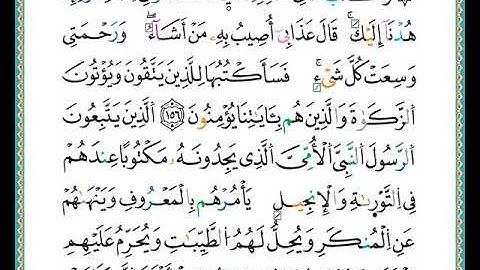 هُدْنَآ إِلَيْكَ ۚ قَالَ عَذَابِىٓ أُصِيبُ بِهِۦ مَنْ أَشَآءُ ۖ وَرَحْمَتِى
وَسِعَتْ كُلَّ شَىْءٍ ۚ فَسَأَكْتُبُهَا لِلَّذِينَ يَتَّقُونَ وَيُؤْتُونَ
ٱلزَّكَوٰةَ وَٱلَّذِينَ هُم بِـَٔايَـٰتِنَا يُؤْمِنُونَ ١٥٦ ٱلَّذِينَ يَتَّبِعُونَ
ٱلرَّسُولَ ٱلنَّبِىَّ ٱلْأُمِّىَّ ٱلَّذِى يَجِدُونَهُۥ مَكْتُوبًا عِندَهُمْ
فِى ٱلتَّوْرَىٰةِ وَٱلْإِنجِيلِ يَأْمُرُهُم بِٱلْمَعْرُوفِ وَيَنْهَىٰهُمْ
عَنِ ٱلْمُنكَرِ وَيُحِلُّ لَهُمُ ٱلطَّيِّبَـٰتِ وَيُحَرِّمُ عَلَيْهِمُ